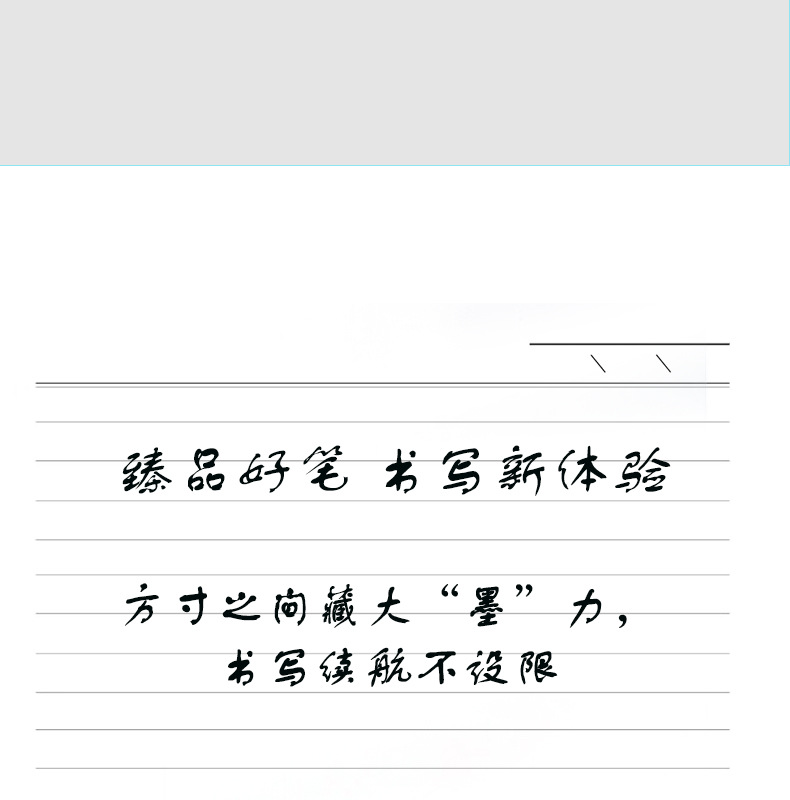 臻品好笔 书写新体验
方寸之间藏大“墨”力，
书写续航不设限